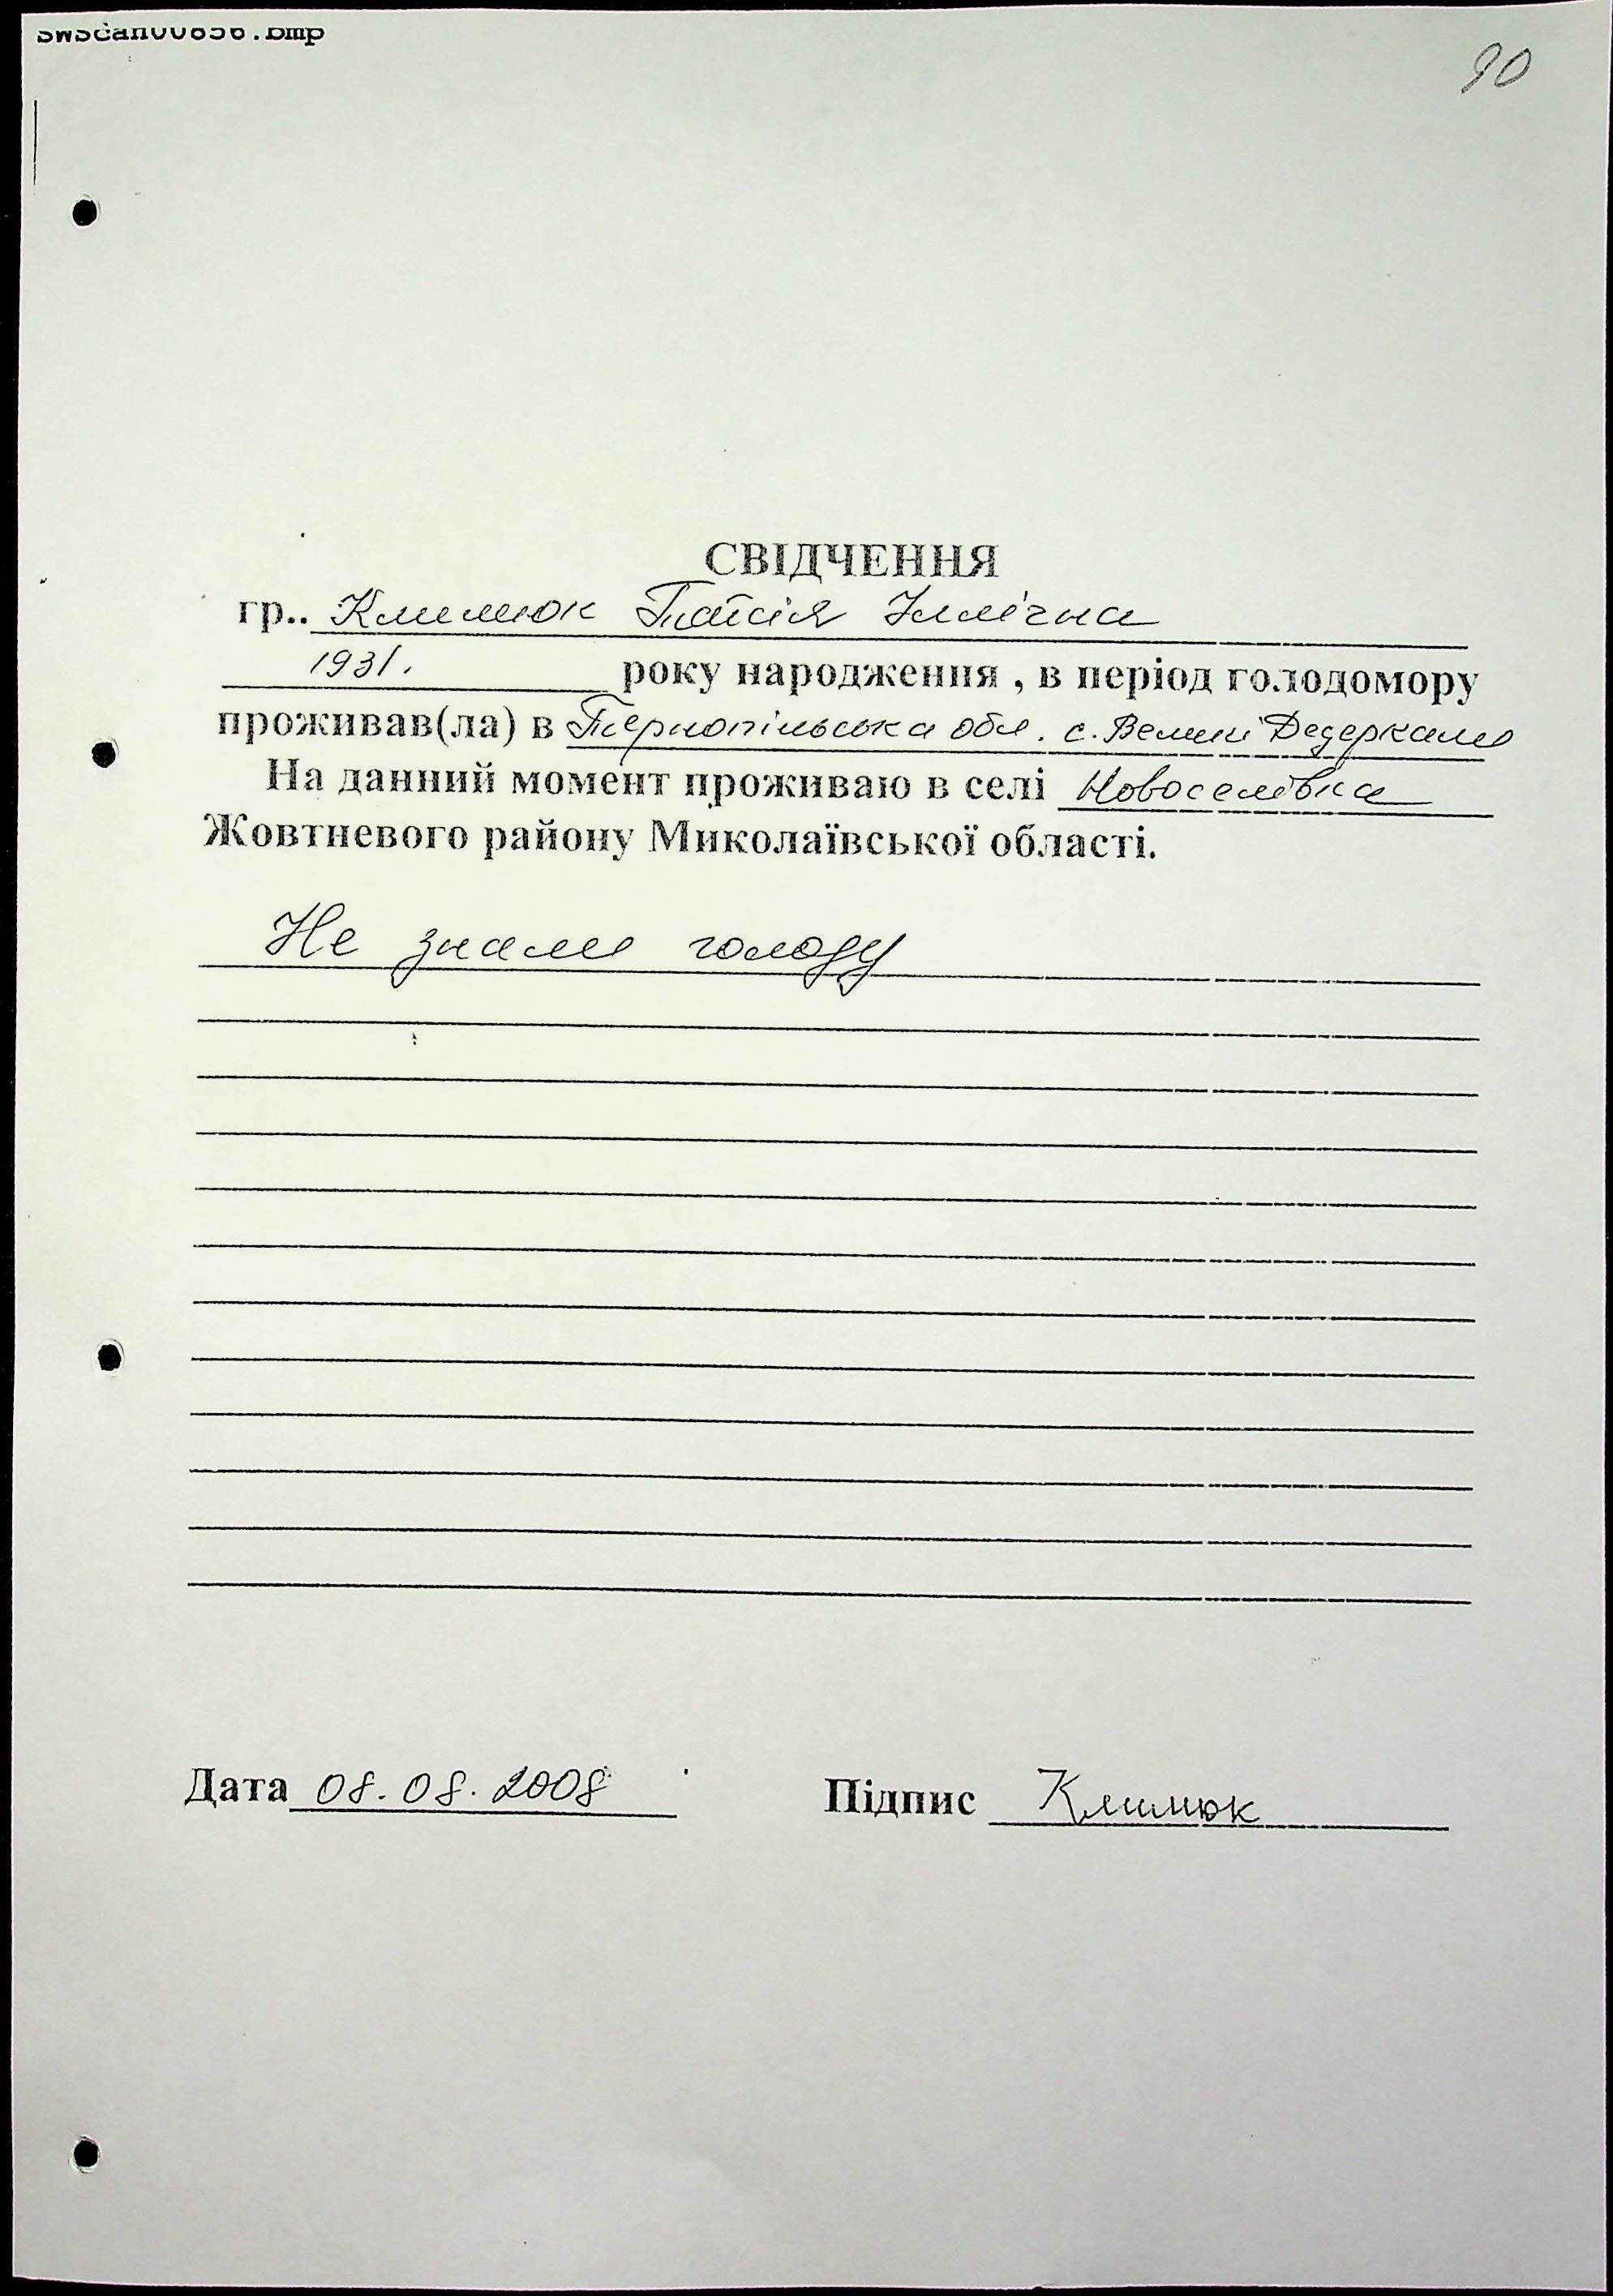 swscan00856.bmp
90
СВІДЧЕННЯ
гр.. Климюк Таїсія Іллічна
1931. року народження , в період голодомору
проживав(ла) в Тернопільська обл. с. Великі Дедеркали
На данний момент проживаю в селі Новоселівка
Жовтневого району Миколаївської області.
Не знали голоду
Дата 08.08.2008 Підпис Климюк